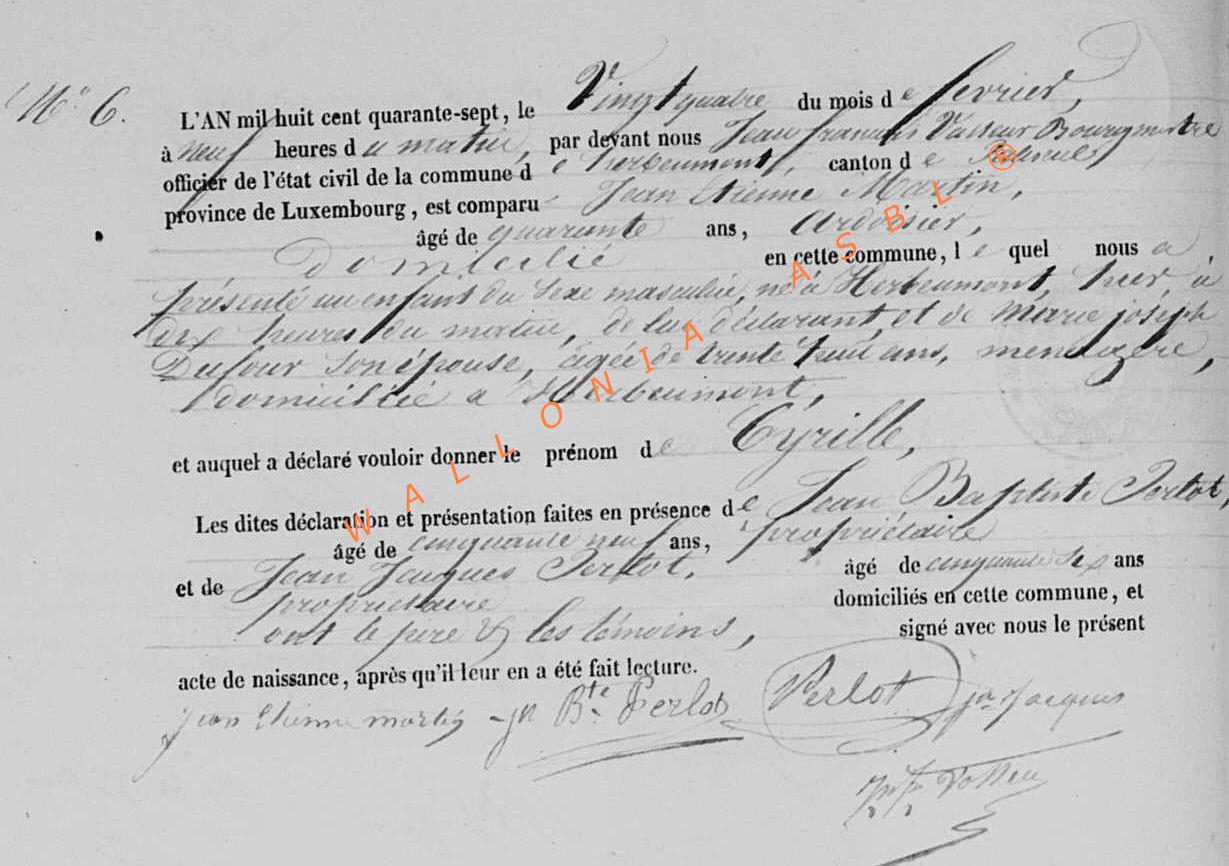 N° 6.
L'AN mil huit cent quarante-sept, le Vingt quatre du mois de fevrier,
à neuf heures du matin, par devant nous Jean françois Vasseur Bourgmestre
officier de l'état civil de la commune de herbeumont, canton de
province de Luxembourg, est comparu Jean Etienne Martin,
âgé de quarante ans, Ardoisier,
domicilié en cette commune, lequel nous a
présenté un enfant du Sexe masculin, né à Herbeumont, hier, à
dix heures du matin, de lui déclarant, et de Marie joseph
Dufour Son épouse, âgée de trente huit ans, menagère,
domiciliée a Herbeumont,
et auquel a déclaré vouloir donner le prénom de Cyrille,
Les dites déclaration et présentation faites en présence de Jean Baptiste Perlot,
âgé de cinquante neuf ans, propriétaire
et de Jean Jacques Perlot, âgé de cinquante six ans
propriétaire domiciliés en cette commune, et
ont le pere & les témoins, signé avec nous le présent
acte de naissance, après qu'il leur en a été fait lecture.
jean Etienne martin Jn Bte Perlot Perlot jn jacques
WALLONIA ASBL ®